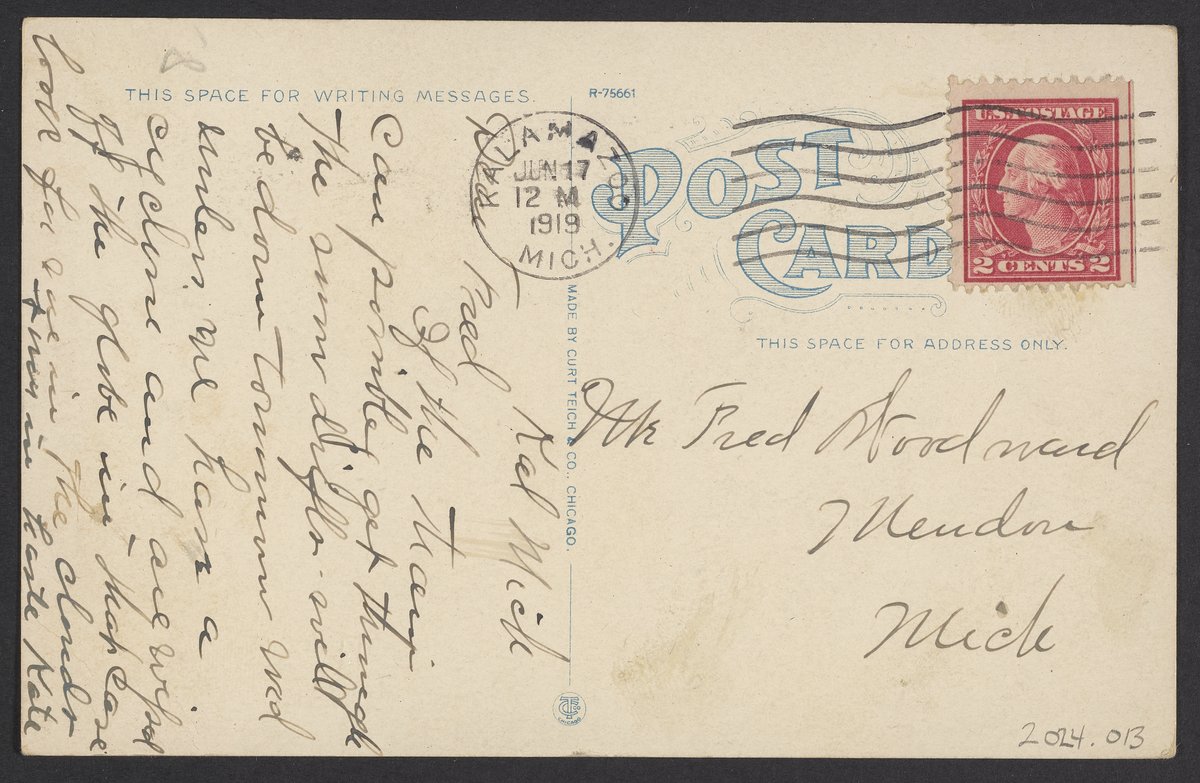 THIS SPACE FOR WRITING MESSAGES.
R-75661
KALAMAZOO
JUN 17
12 M
1919
MICH.
POST
CARD
U.S. POSTAGE
2 CENTS 2
THIS SPACE FOR ADDRESS ONLY.
MADE BY CURT TEICH & CO., CHICAGO.
Mr Fred Woodward
Mendon
Mich
2024.013
Kal Mich
Fred
If the train
Can possibly get through
The sand drifts will
be down tomorrow Wed
unless we have a
cyclone and are wiped
off the globe in that case
look for me in the clouds
in haste Kate